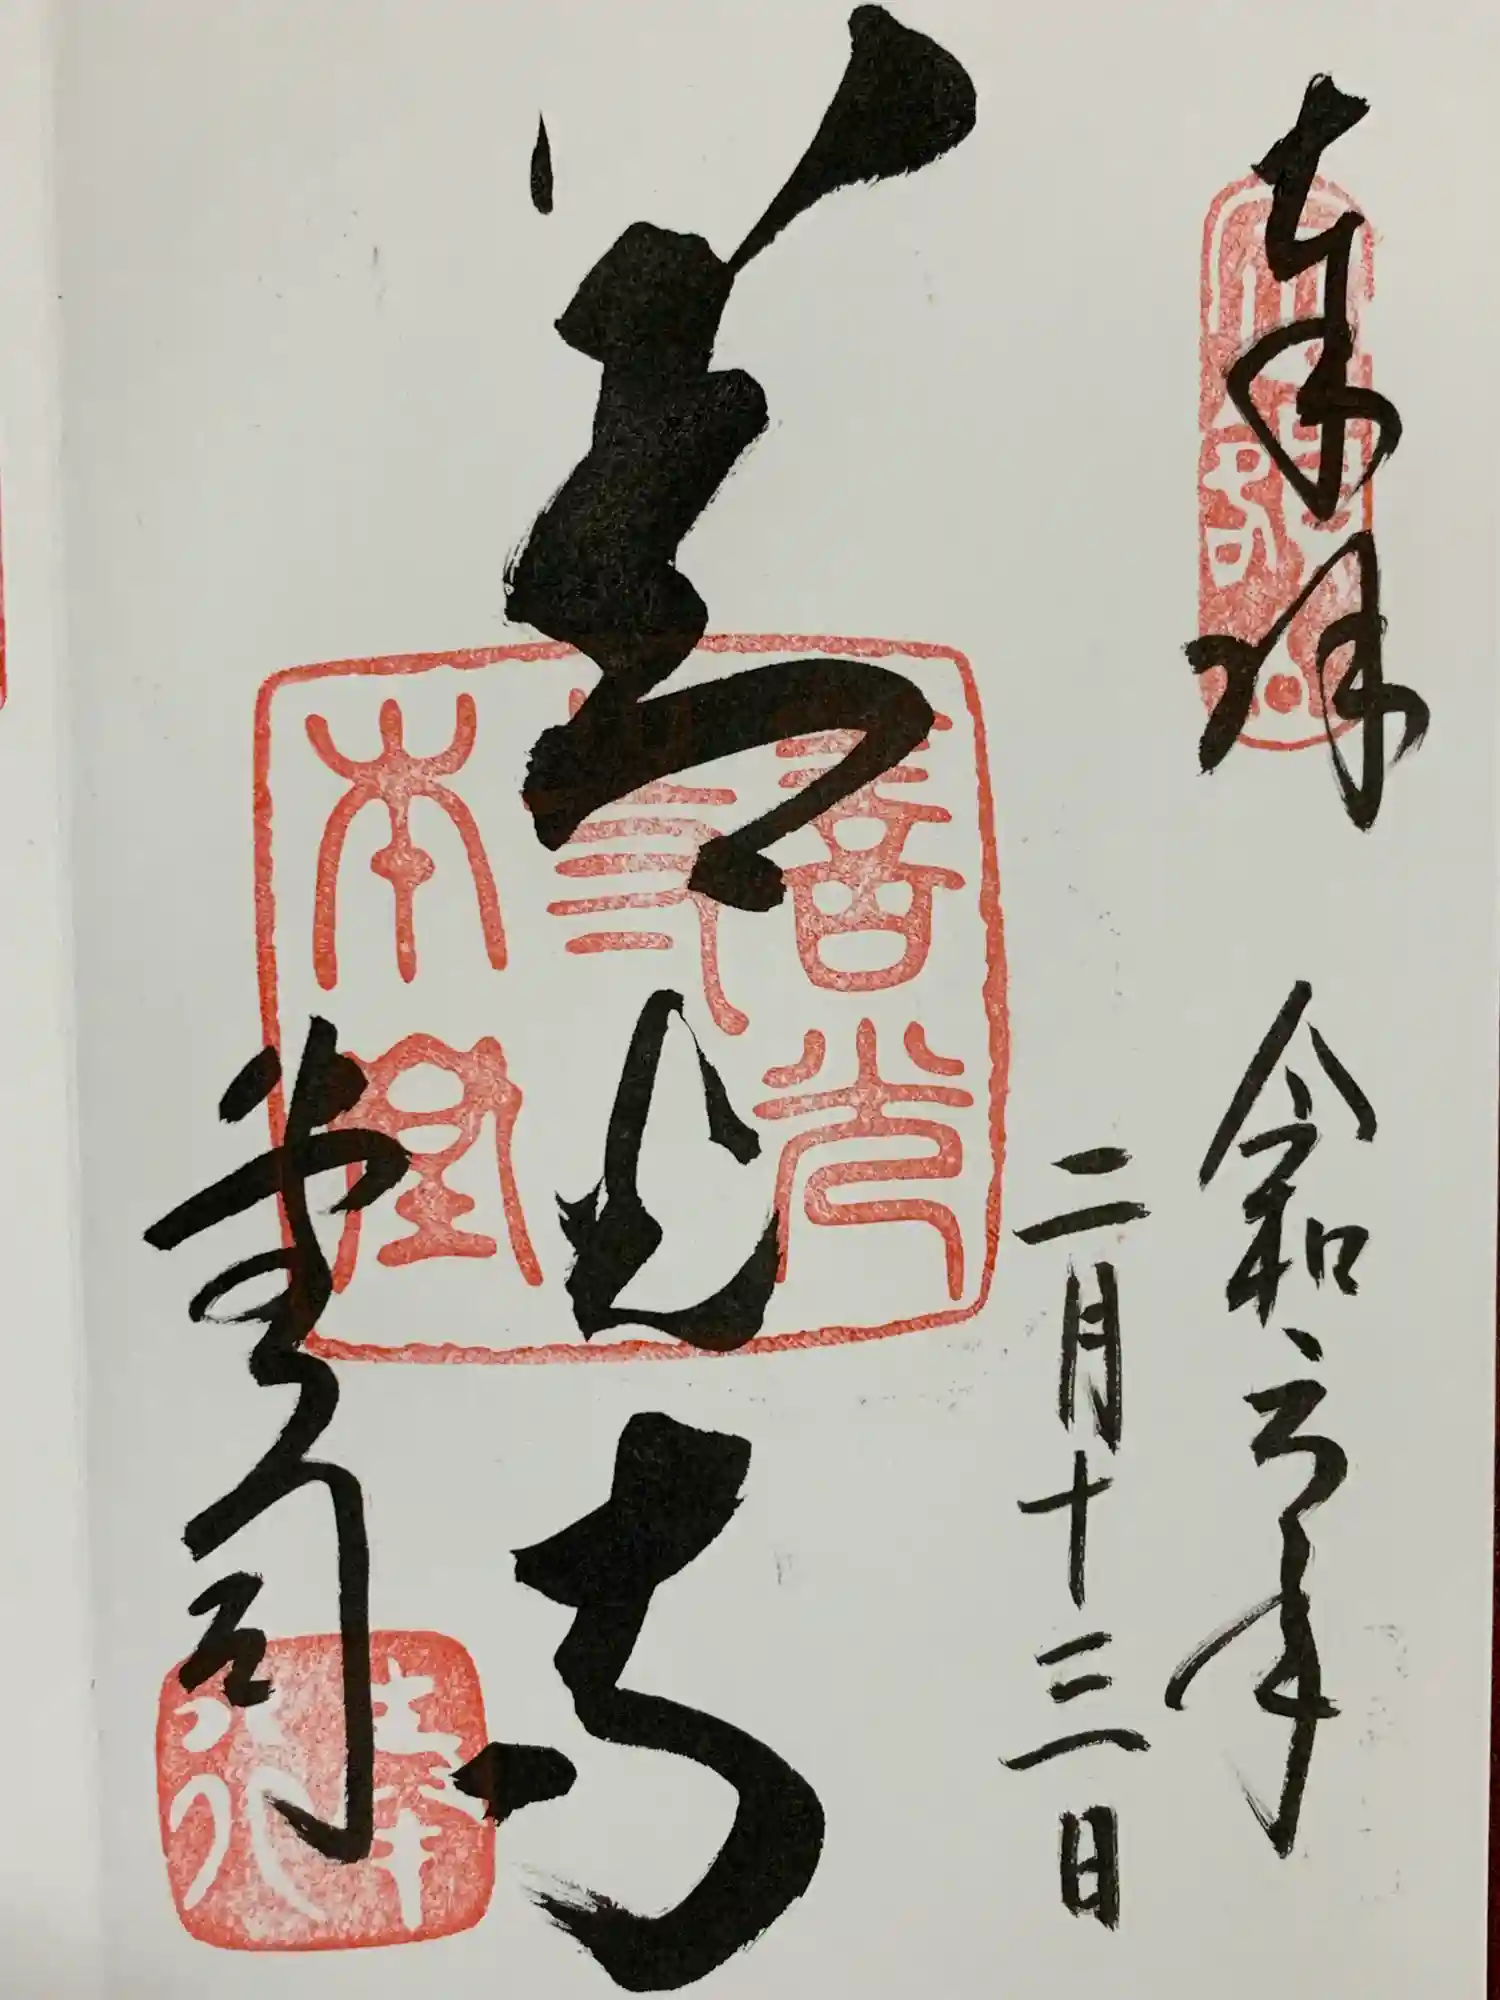 奉拝
令和六年
二月十三日
善光寺
堂司
善光
寺
本堂